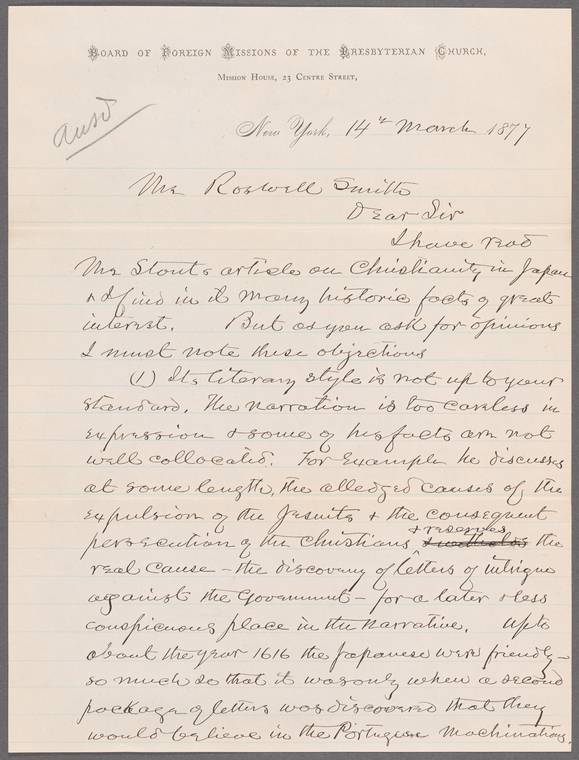 Board of Foreign Missions of the Presbyterian Church,
Mission House, 23 Centre Street,
ansd
New York, 14th March 1877
Mr Roswell Smith
Dear Sir
I have read
Mr Stouts article on Christianity in Japan
& I find in it many historic facts of great
interest. But as you ask for opinions
I must note these objections
(1) Its literary style is not up to your
standard. The narration is too careless in
expression & some of his facts are not
well collocated. For Example he discusses
at some length, the alledged causes of the
expulsion of the Jesuits & the consequent
& reserves
persecution of the Christians & withholds the
real cause – the discovery of letters of intrigue
against the Government – for a later & less
conspicuous place in the narrative. Up to
about the year 1616 the Japanese were friendly –
so much so that it was only when a second
package of letters was discovered that they
would believe in the Portuguese machinations.